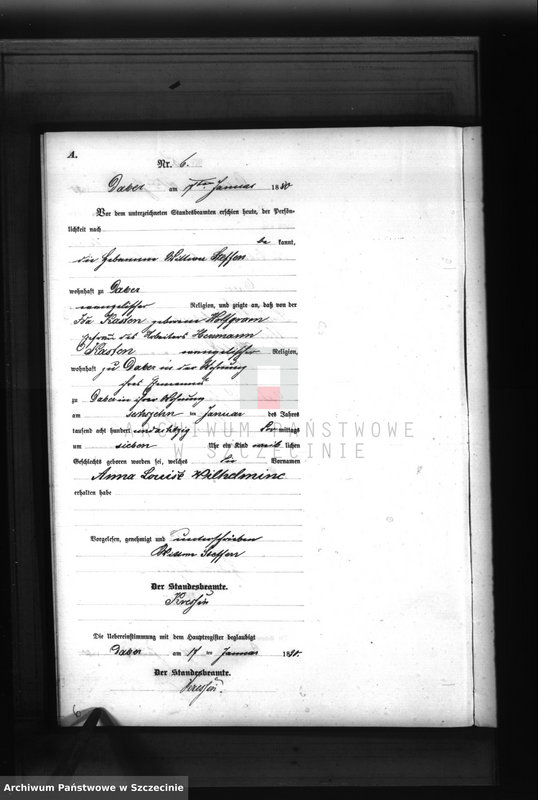 A.
Nr. 6.
Daber am 17ten Januar 1880
Vor dem unterzeichneten Standesbeamten erschien heute, der Persön-
lichkeit nach
be kannt,
die Hebamme Wittwe Steffen
wohnhaft zu Daber
evangelischer Religion, und zeigte an, daß von der
Ida Karsten geborene
Ehefrau des Arbeiters Hermann
Karsten evangelischer Religion,
wohnhaft zu Daber in der Wohnung
ihres Ehemannes
zu Daber in ihrer Wohnung
am sechszehn ten Januar des Jahres
tausend acht hundert und achtzig Vor mittags
um sieben Uhr ein Kind weib lichen
Geschlechts geboren worden sei, welches die Vornamen
Anna Louise Wilhelmine
erhalten habe
Vorgelesen, genehmigt und unterschrieben
Wittwe Steffen
Der Standesbeamte.
Die Uebereinstimmung mit dem Hauptregister beglaubigt
Daber am 17 ten Januar 1880.
Der Standesbeamte.
6
ARCHIWUM PAŃSTWOWE
W SZCZECINIE
Archiwum Państwowe w Szczecinie